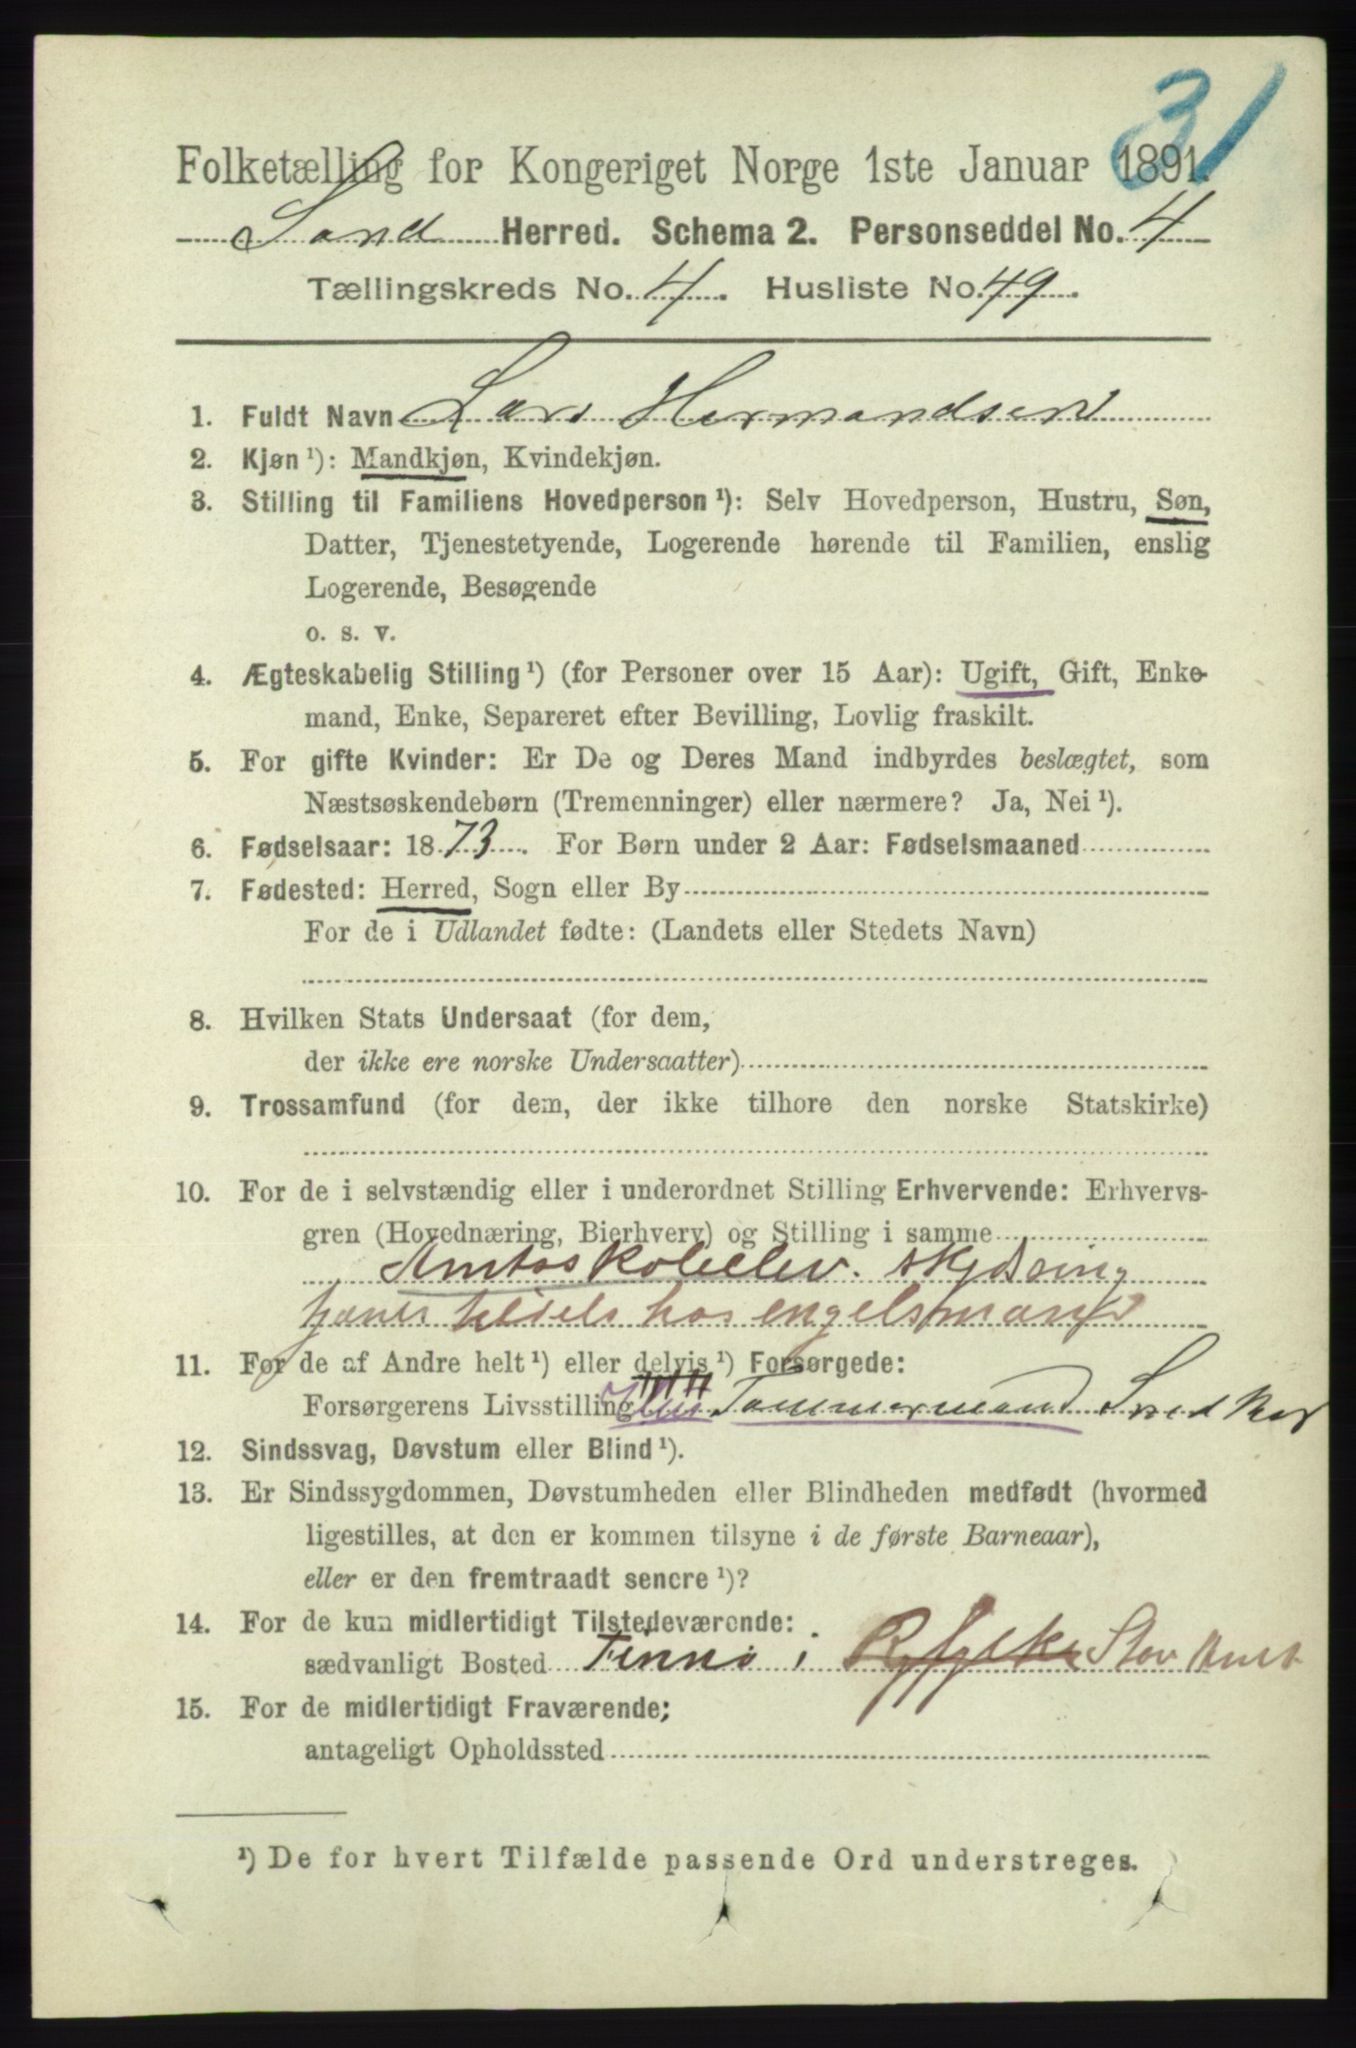 31
Folketælling for Kongeriget Norge 1ste Januar 1891.
Sand Herred. Schema 2. Personseddel No. 4
Tællingskreds No. 4. Husliste No. 49.
1. Fuldt Navn Lars Hermandsen
2. Kjøn ¹): Mandkjøn, Kvindekjøn.
3. Stilling til Familiens Hovedperson ¹): Selv Hovedperson, Hustru, Søn,
Datter, Tjenestetyende, Logerende hørende til Familien, enslig
Logerende, Besøgende
o. s. v.
4. Ægteskabelig Stilling ¹) (for Personer over 15 Aar): Ugift, Gift, Enke-
mand, Enke, Separeret efter Bevilling, Lovlig fraskilt.
5. For gifte Kvinder: Er De og Deres Mand indbyrdes beslægtet, som
Næstsøskendebørn (Tremenninger) eller nærmere? Ja, Nei ¹).
6. Fødselsaar: 1873. For Børn under 2 Aar: Fødselsmaaned
7. Fødested: Herred, Sogn eller By
For de i Udlandet fødte: (Landets eller Stedets Navn)
8. Hvilken Stats Undersaat (for dem,
der ikke ere norske Undersaatter)
9. Trossamfund (for dem, der ikke tilhøre den norske Statskirke)
10. For de i selvstændig eller i underordnet Stilling Erhvervende: Erhvervs-
gren (Hovednæring, Bierhverv) og Stilling i samme
Amtsskoleelev. skydsning
tjener tildels hos engelsmand
11. For de af Andre helt ¹) eller delvis ¹) Forsørgede:
Forsørgerens Livsstilling Tømmermand Snedker
12. Sindssvag, Døvstum eller Blind ¹).
13. Er Sindssygdommen, Døvstumheden eller Blindheden medfødt (hvormed
ligestilles, at den er kommen tilsyne i de første Barneaar),
eller er den fremtraadt senere ¹)?
14. For de kun midlertidigt Tilstedeværende:
sædvanligt Bosted Finnø i Ryfylke Stav Amt
15. For de midlertidigt Fraværende;
antageligt Opholdssted
¹) De for hvert Tilfælde passende Ord understreges.